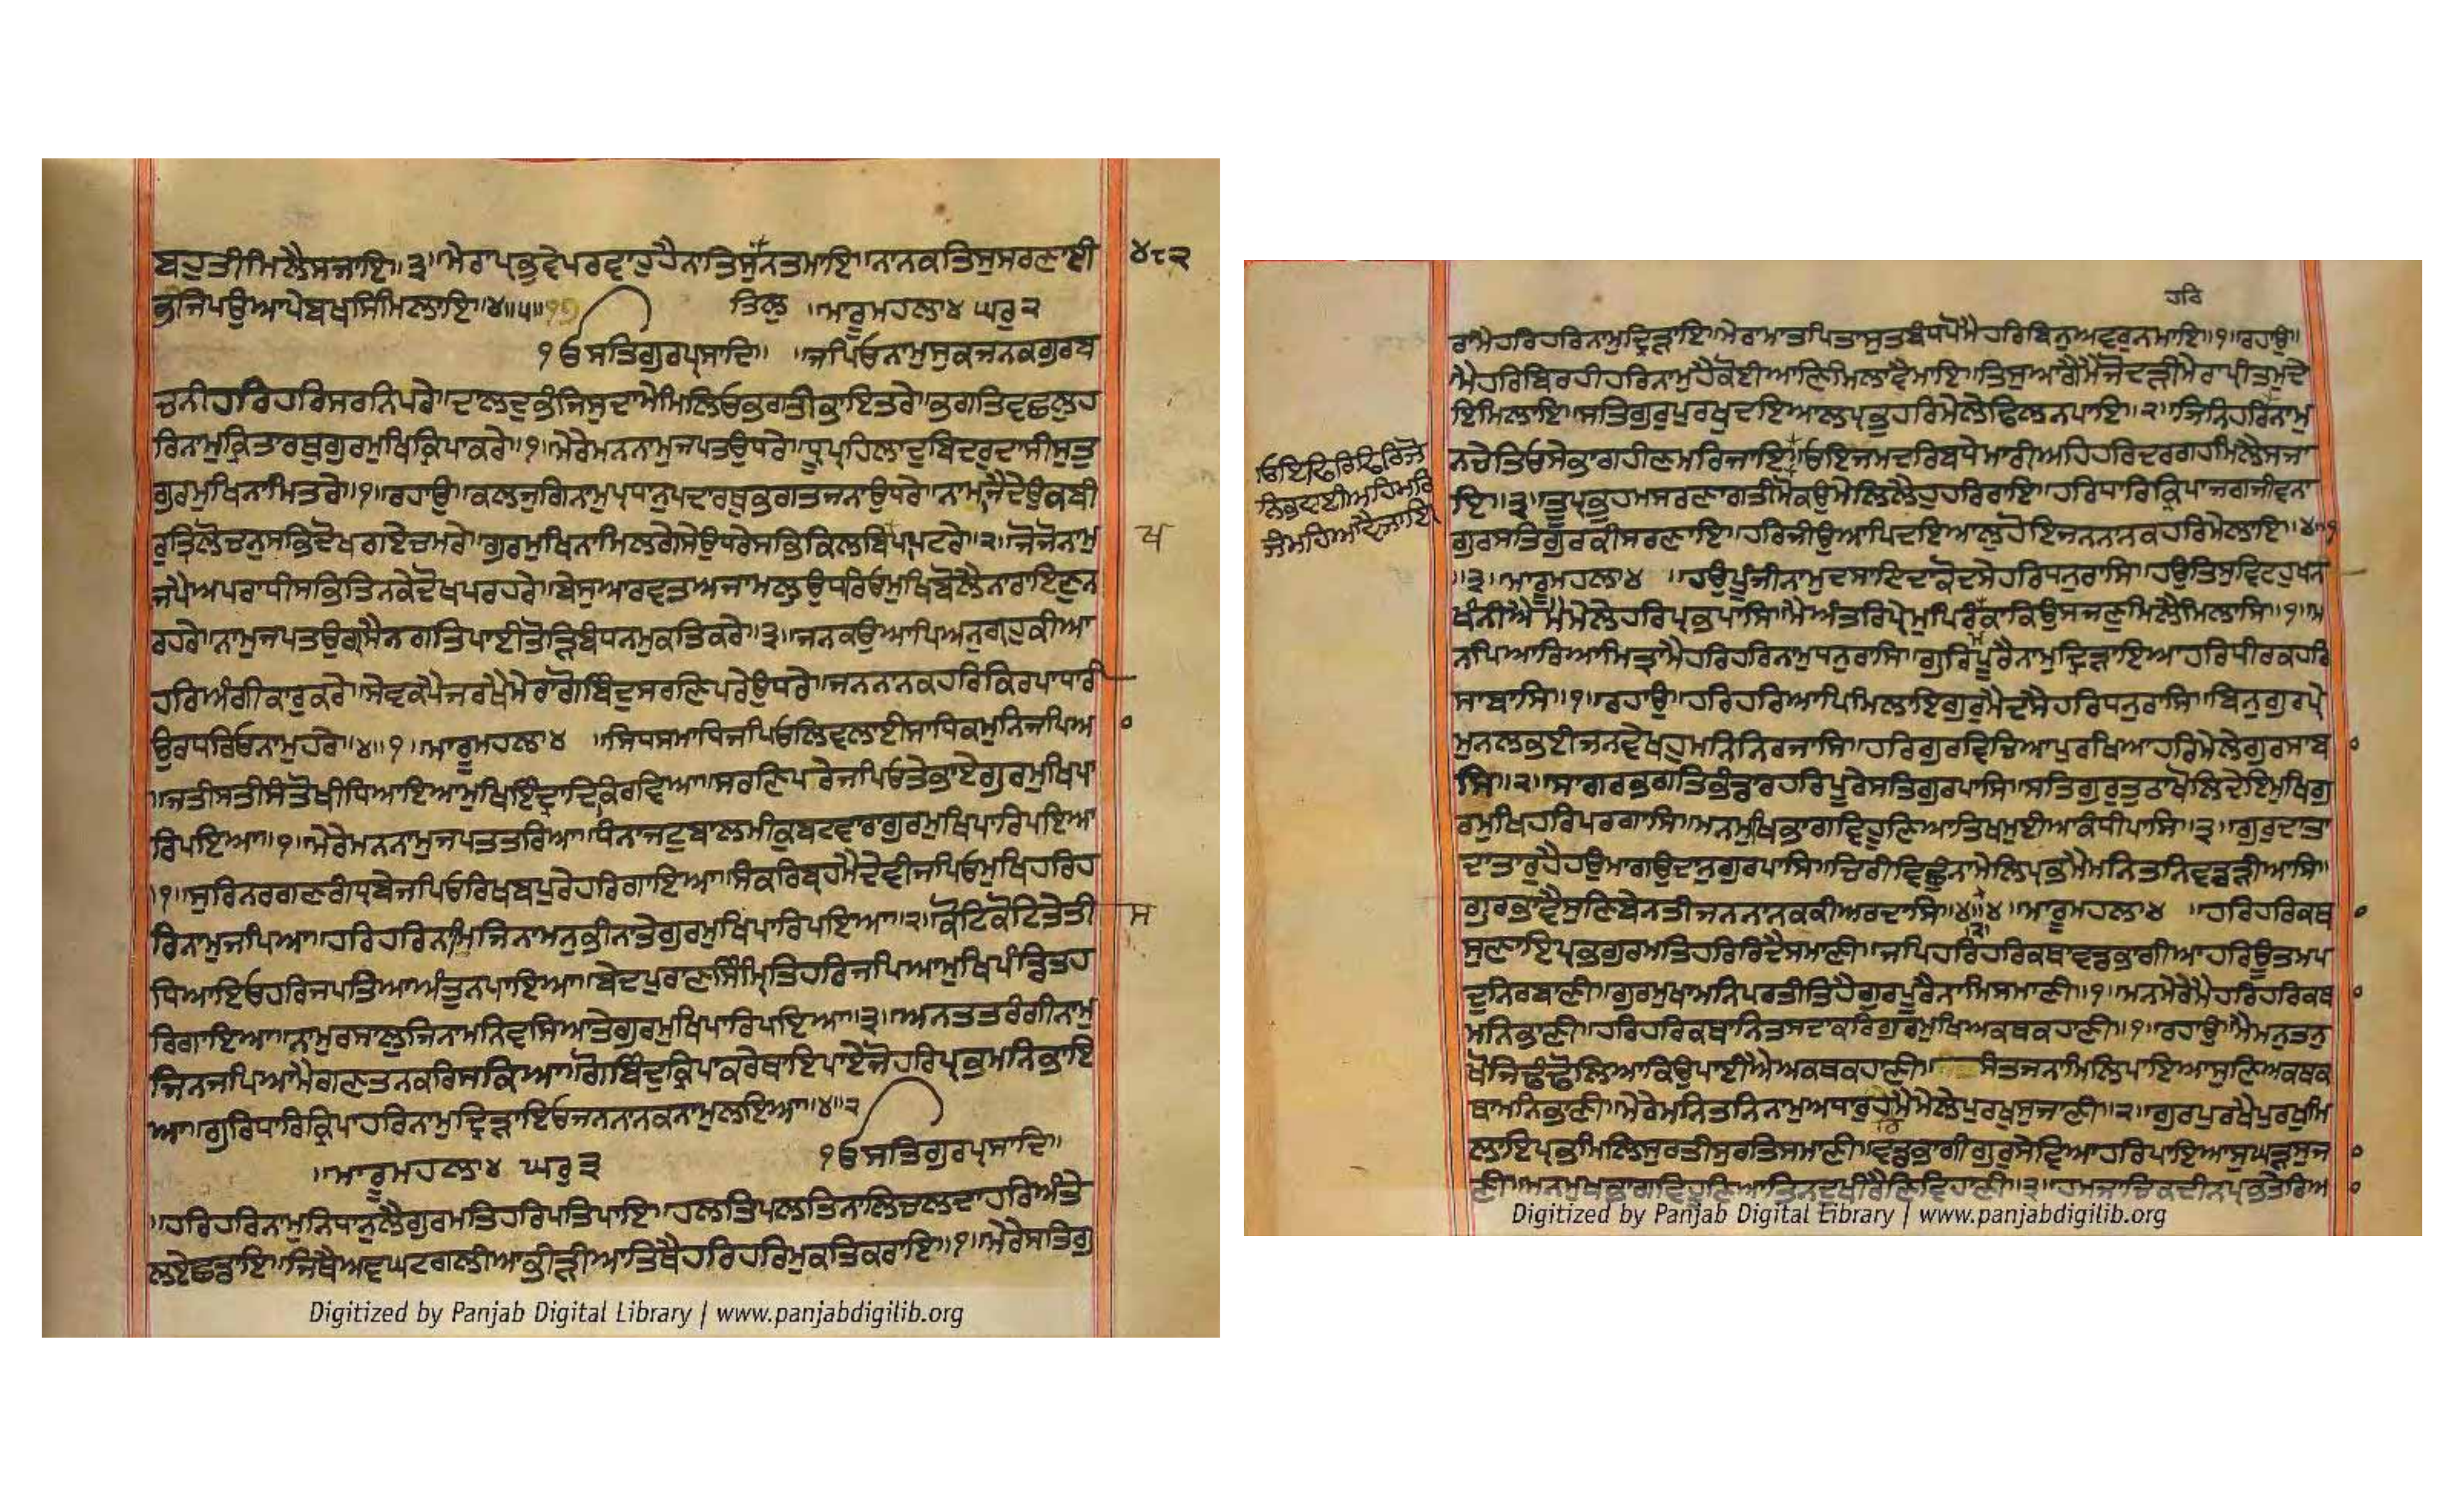 ਬਹੁਤੀਮਿਲੈਸਜਾਇ॥੩॥ਮੇਰਾਪ੍ਰਭੁਵੇਪਰਵਾਹੁਹੈਨਾਤਿਸੁਨਤਮਾਇ॥ਨਾਨਕਤਿਸੁਸਰਣਾਈ ੪੮੨
ਭਜਿਪਉਆਪੇਬਖਸਿਮਿਲਾਇ॥੪॥੫॥ ਤਿਲੁ ॥ਮਾਰੂਮਹਲਾ੪ ਘਰੁ੨
ੴਸਤਿਗੁਰਪ੍ਰਸਾਦਿ॥ ॥ਜਪਿਓਨਾਮੁਸੁਕਜਨਕਗੁਰਬ
ਚਨੀਹਰਿਹਰਿਸਰਨਿਪਰੇ॥ਦਾਲਦੁਭੰਜਿਸੁਦਾਮੇਮਿਲਿਓਭਗਤੀਭਾਇਤਰੇ॥ਭਗਤਿਵਛਲੁਹ
ਰਿਨਾਮੁਕ੍ਰਿਤਾਰਥੁਗੁਰਮੁਖਿਕ੍ਰਿਪਾਕਰੇ॥੧॥ਮੇਰੇਮਨਨਾਮੁਜਪਤਉਧਰੇ॥ਧ੍ਰੂਪ੍ਰਹਿਲਾਦੁਬਿਦਰੁਦਾਸੀਸੁਤੁ
ਗੁਰਮੁਖਿਨਾਮਿਤਰੇ॥੧॥ਰਹਾਉ॥ਕਲਜੁਗਿਨਾਮੁਪ੍ਰਧਾਨੁਪਦਾਰਥੁਭਗਤਜਨਾਉਧਰੇ॥ਨਾਮਾਜੈਦੇਉਕਬੀ
ਰੁਤ੍ਰਿਲੋਚਨੁਸਭਿਦੋਖਗਏਚਮਰੇ॥ਗੁਰਮੁਖਿਨਾਮਿਲਗੇਸੇਉਧਰੇਸਭਿਕਿਲਬਿਖਪਾਪਟਰੇ॥੨॥ਜੋਜੋਨਾਮੁ
ਜਪੈਅਪਰਾਧੀਸਭਿਤਿਨਕੇਦੋਖਪਰਹਰੇ॥ਬੇਸੁਆਰਵਤਅਜਾਮਲੁਉਧਰਿਓਮੁਖਿਬੋਲੈਨਾਰਾਇਣੁਨ
ਰਹਰੇ॥ਨਾਮੁਜਪਤਉਗ੍ਰਸੈਨਗਤਿਪਾਈਤੋੜਿਬੰਧਨਮੁਕਤਿਕਰੇ॥੩॥ਜਨਕਉਆਪਿਅਨੁਗ੍ਰਹੁਕੀਆ
ਹਰਿਅੰਗੀਕਾਰੁਕਰੇ॥ਸੇਵਕਪੈਜਰਖੈਮੇਰਾਗੋਬਿੰਦੁਸਰਣਿਪਰੇਉਧਰੇ॥ਜਨਨਾਨਕਹਰਿਕਿਰਪਾਧਾਰੀ
ਉਰਧਰਿਓਨਾਮੁਹਰੇ॥੪॥੧॥ਮਾਰੂਮਹਲਾ੪ ॥ਸਿਧਸਮਾਧਿਜਪਿਓਲਿਵਲਾਈਸਾਧਿਕਮੁਨਿਜਪਿਆ
॥ਜਤੀਸਤੀਸੰਤੋਖੀਧਿਆਇਆਮੁਖਿਇੰਦ੍ਰਾਦਿਕਰਵਿਆ॥ਸਰਣਿਪਰੇਜਪਿਓਤੇਭਾਏਗੁਰਮੁਖਿਪਾ
ਰਿਪਇਆ॥੧॥ਮੇਰੇਮਨਨਾਮੁਜਪਤਤਰਿਆ॥ਧੰਨਾਜਟੁਬਾਲਮੀਕੁਬਟਵਾਰਾਗੁਰਮੁਖਿਪਾਰਿਪਇਆ
॥੧॥ਸੁਰਿਨਰਗਣਗੰਧ੍ਰਬੇਜਪਿਓਰਿਖਬਪੁਰੇਹਰਿਗਾਇਆ॥ਸੰਕਰਿਬ੍ਰਹਮੈਦੇਵੀਜਪਿਓਮੁਖਿਹਰਿਹ
ਰਿਨਾਮੁਜਪਿਆ॥ਹਰਿਹਰਿਨਾਮਿਜਿਨਾਮਨੁਭੀਨਾਤੇਗੁਰਮੁਖਿਪਾਰਿਪਇਆ॥੨॥ਕੋਟਿਕੋਟਿਤੇਤੀ ਸ
ਧਿਆਇਓਹਰਿਜਪਤਿਆਅੰਤੁਨਪਾਇਆ॥ਬੇਦਪੁਰਾਣਸਿੰਮ੍ਰਿਤਿਹਰਿਜਪਿਆਮੁਖਿਪੰਡਿਤਹ
ਰਿਗਾਇਆ॥ਨਾਮੁਰਸਾਲੁਜਿਨਾਮਨਿਵਸਿਆਤੇਗੁਰਮੁਖਿਪਾਰਿਪਇਆ॥੩॥ਅਨਤਤਰੰਗੀਨਾਮੁ
ਜਿਨਜਪਿਆਮੈਗਣਤਨਕਰਿਸਕਿਆ॥ਗੋਬਿੰਦੁਕ੍ਰਿਪਾਕਰੇਥਾਇਪਾਏਜੋਹਰਿਪ੍ਰਭਮਨਿਭਾਇ
ਆ॥ਗੁਰਿਧਾਰਿਕ੍ਰਿਪਾਹਰਿਨਾਮੁਦ੍ਰਿੜਾਇਓਜਨਨਾਨਕਨਾਮੁਲਇਆ॥੪॥੨
॥ਮਾਰੂਮਹਲਾ੪ ਘਰੁ੩ ੴਸਤਿਗੁਰਪ੍ਰਸਾਦਿ॥
॥ਹਰਿਹਰਿਨਾਮੁਨਿਧਾਨੁਲੈਗੁਰਮਤਿਹਰਿਪਤਿਪਾਇ॥ਹਲਤਿਪਲਤਿਨਾਲਿਚਲਦਾਹਰਿਅੰਤੇ
ਲਏਛਡਾਇ॥ਜਿਥੈਅਵਘਟਗਲੀਆਭੀੜੀਆਤਿਥੈਹਰਿਹਰਿਮੁਕਤਿਕਰਾਇ॥੧॥ਮੇਰੇਸਤਿਗੁ
Digitized by Panjab Digital Library | www.panjabdigilib.org
ਹਰਿ
ਰਾਮੈਹਰਿਹਰਿਨਾਮੁਦ੍ਰਿੜਾਇ॥ਮੇਰਾਮਾਤਪਿਤਾਸੁਤਬੰਧਪੋਮੈਹਰਿਬਿਨੁਅਵਰੁਨਮਾਇ॥੧॥ਰਹਾਉ॥
ਮੈਹਰਿਬਿਰਹੀਹਰਿਨਾਮੁਹੈਕੋਈਆਣਿਮਿਲਾਵੈਮਾਇ॥ਤਿਸੁਆਗੈਮੈਜੋਦੜੀਮੇਰਾਪ੍ਰੀਤਮੁਦੇ
ਇਮਿਲਾਇ॥ਸਤਿਗੁਰੁਪੁਰਖੁਦਇਆਲਪ੍ਰਭੁਹਰਿਮੇਲੇਢਿਲਨਪਾਇ॥੨॥ਜਿਨਿਹਰਿਨਾਮੁ
ਨਚੇਤਿਓਸੇਭਾਗਹੀਣਮਰਿਜਾਇ॥ਓਇਜਮਦਰਿਬਧੇਮਾਰੀਅਹਿਹਰਿਦਰਗਹਮਿਲੈਸਜਾ
ਓਇਫਿਰਿਫਿਰਿਜੋ
ਨਿਭਵਾਈਅਹਿਮਰਿ
ਜੰਮਹਿਆਵੈਜਾਇ
ਇ॥੩॥ਤੂਪ੍ਰਭੁਹਮਸਰਣਾਗਤੀਮੋਕਉਮੇਲਿਲੈਹੁਹਰਿਰਾਇ॥ਹਰਿਧਾਰਿਕ੍ਰਿਪਾਜਗਜੀਵਨਾ
ਗੁਰਸਤਿਗੁਰਕੀਸਰਣਾਇ॥ਹਰਿਜੀਉਆਪਿਦਇਆਲੁਹੋਇਜਨਨਾਨਕਹਰਿਮੇਲਾਇ॥੪॥੧
॥੩॥ਮਾਰੂਮਹਲਾ੪ ॥ਹਉਪੂੰਜੀਨਾਮੁਦਸਾਇਦਾਕੋਦਸੇਹਰਿਧਨੁਰਾਸਿ॥ਹਉਤਿਸੁਵਿਟਹੁਖਨ
ਖੰਨੀਐਮੈਮੇਲੇਹਰਿਪ੍ਰਭਪਾਸਿ॥ਮੈਅੰਤਰਿਪ੍ਰੇਮੁਪਿਰੰਮਕਾਕਿਉਸਜਣੁਮਿਲੈਮਿਲਾਸਿ॥੧॥ਮ
ਨਪਿਆਰਿਆਮਿਤ੍ਰਾਮੈਹਰਿਹਰਿਨਾਮੁਧਨੁਰਾਸਿ॥ਗੁਰਿਪੂਰੈਨਾਮੁਦ੍ਰਿੜਾਇਆਹਰਿਧੀਰਕਹਰਿ
ਸਾਬਾਸਿ॥੧॥ਰਹਾਉ॥ਹਰਿਹਰਿਆਪਿਮਿਲਾਇਗੁਰੁਮੈਦਸੇਹਰਿਧਨੁਰਾਸਿ॥ਬਿਨੁਗੁਰਪ੍ਰੇ
ਮੁਨਲਭਈਜਨਵੇਖਹੁਮਨਿਨਿਰਜਾਸਿ॥ਹਰਿਗੁਰਵਿਚਿਆਪੁਰਖਿਆਹਰਿਮੇਲੇਗੁਰਸਾਬਾ
ਸਿ॥੨॥ਸਾਗਰਭਗਤਿਭੰਡਾਰਹਰਿਪੂਰੇਸਤਿਗੁਰਪਾਸਿ॥ਸਤਿਗੁਰੁਤੁਠਾਖੋਲਿਦੇਇਮੁਖਿਗੁ
ਰਮੁਖਿਹਰਿਪਰਗਾਸਿ॥ਮਨਮੁਖਿਭਾਗਵਿਹੂਣਿਆਤਿਖਮੁਈਆਕੰਧੀਪਾਸਿ॥੩॥ਗੁਰੁਦਾਤਾ
ਦਾਤਾਰੁਹੈਹਉਮਾਗਉਦਾਨੁਗੁਰਪਾਸਿ॥ਚਿਰੀਵਿਛੁੰਨਾਮੇਲਿਪ੍ਰਭਮੈਮਨਿਤਨਿਵਡੜੀਆਸ॥
ਗੁਰਭਾਵੈਸੁਣਿਬੇਨਤੀਜਨਨਾਨਕਕੀਅਰਦਾਸਿ॥੪॥੪॥ਮਾਰੂਮਹਲਾ੪ ॥ਹਰਿਹਰਿਕਥਾ
ਸੁਣਾਇਪ੍ਰਭਗੁਰਮਤਿਹਰਿਰਿਦੈਸਮਾਣੀ॥ਜਪਿਹਰਿਹਰਿਕਥਾਵਡਭਾਗੀਆਹਰਿਉਤਮਪ
ਦੁਨਿਰਬਾਣੀ॥ਗੁਰਮੁਖਾਮਨਿਪਰਤੀਤਿਹੈਗੁਰਪੂਰੈਨਾਮਿਸਮਾਣੀ॥੧॥ਮਨਮੇਰੇਮੈਹਰਿਹਰਿਕਥਾ
ਮਨਿਭਾਣੀ॥ਹਰਿਹਰਿਕਥਾਨਿਤਸਦਾਕਰਿਗੁਰਮੁਖਿਅਕਥਕਹਾਣੀ॥੧॥ਰਹਾਉ॥ਮੈਮਨੁਤਨੁ
ਖੋਜਿਢੰਢੋਲਿਆਕਿਉਪਾਈਐਅਕਥਕਹਾਣੀ॥ਸੰਤਜਨਾਮਿਲਿਪਾਇਆਸੁਣਿਅਕਥਕ
ਥਾਮਨਿਭਾਣੀ॥ਮੇਰੇਮਨਿਤਨਿਨਾਮੁਅਧਾਰੁਹਰਿਮੈਮੇਲੇਪੁਰਖੁਸੁਜਾਣੀ॥੨॥ਗੁਰਪੁਰਖੈਪੁਰਖੁਮਿ
ਲਾਇਪ੍ਰਭਮਿਲਿਸੁਰਤੀਸੁਰਤਿਸਮਾਣੀ॥ਵਡਭਾਗੀਗੁਰੁਸੇਵਿਆਹਰਿਪਾਇਆਸੁਘੜਸੁਜਾ
ਣੀ॥ਮਨਮੁਖਭਾਗਵਿਹੂਣਿਆਤਿਨਦੁਖੀਰੈਣਿਵਿਹਾਣੀ॥੩॥ਹਮਜਾਚਿਕਦੀਨਪ੍ਰਭਤੇਰਿਆ
Digitized by Panjab Digital Library | www.panjabdigilib.org